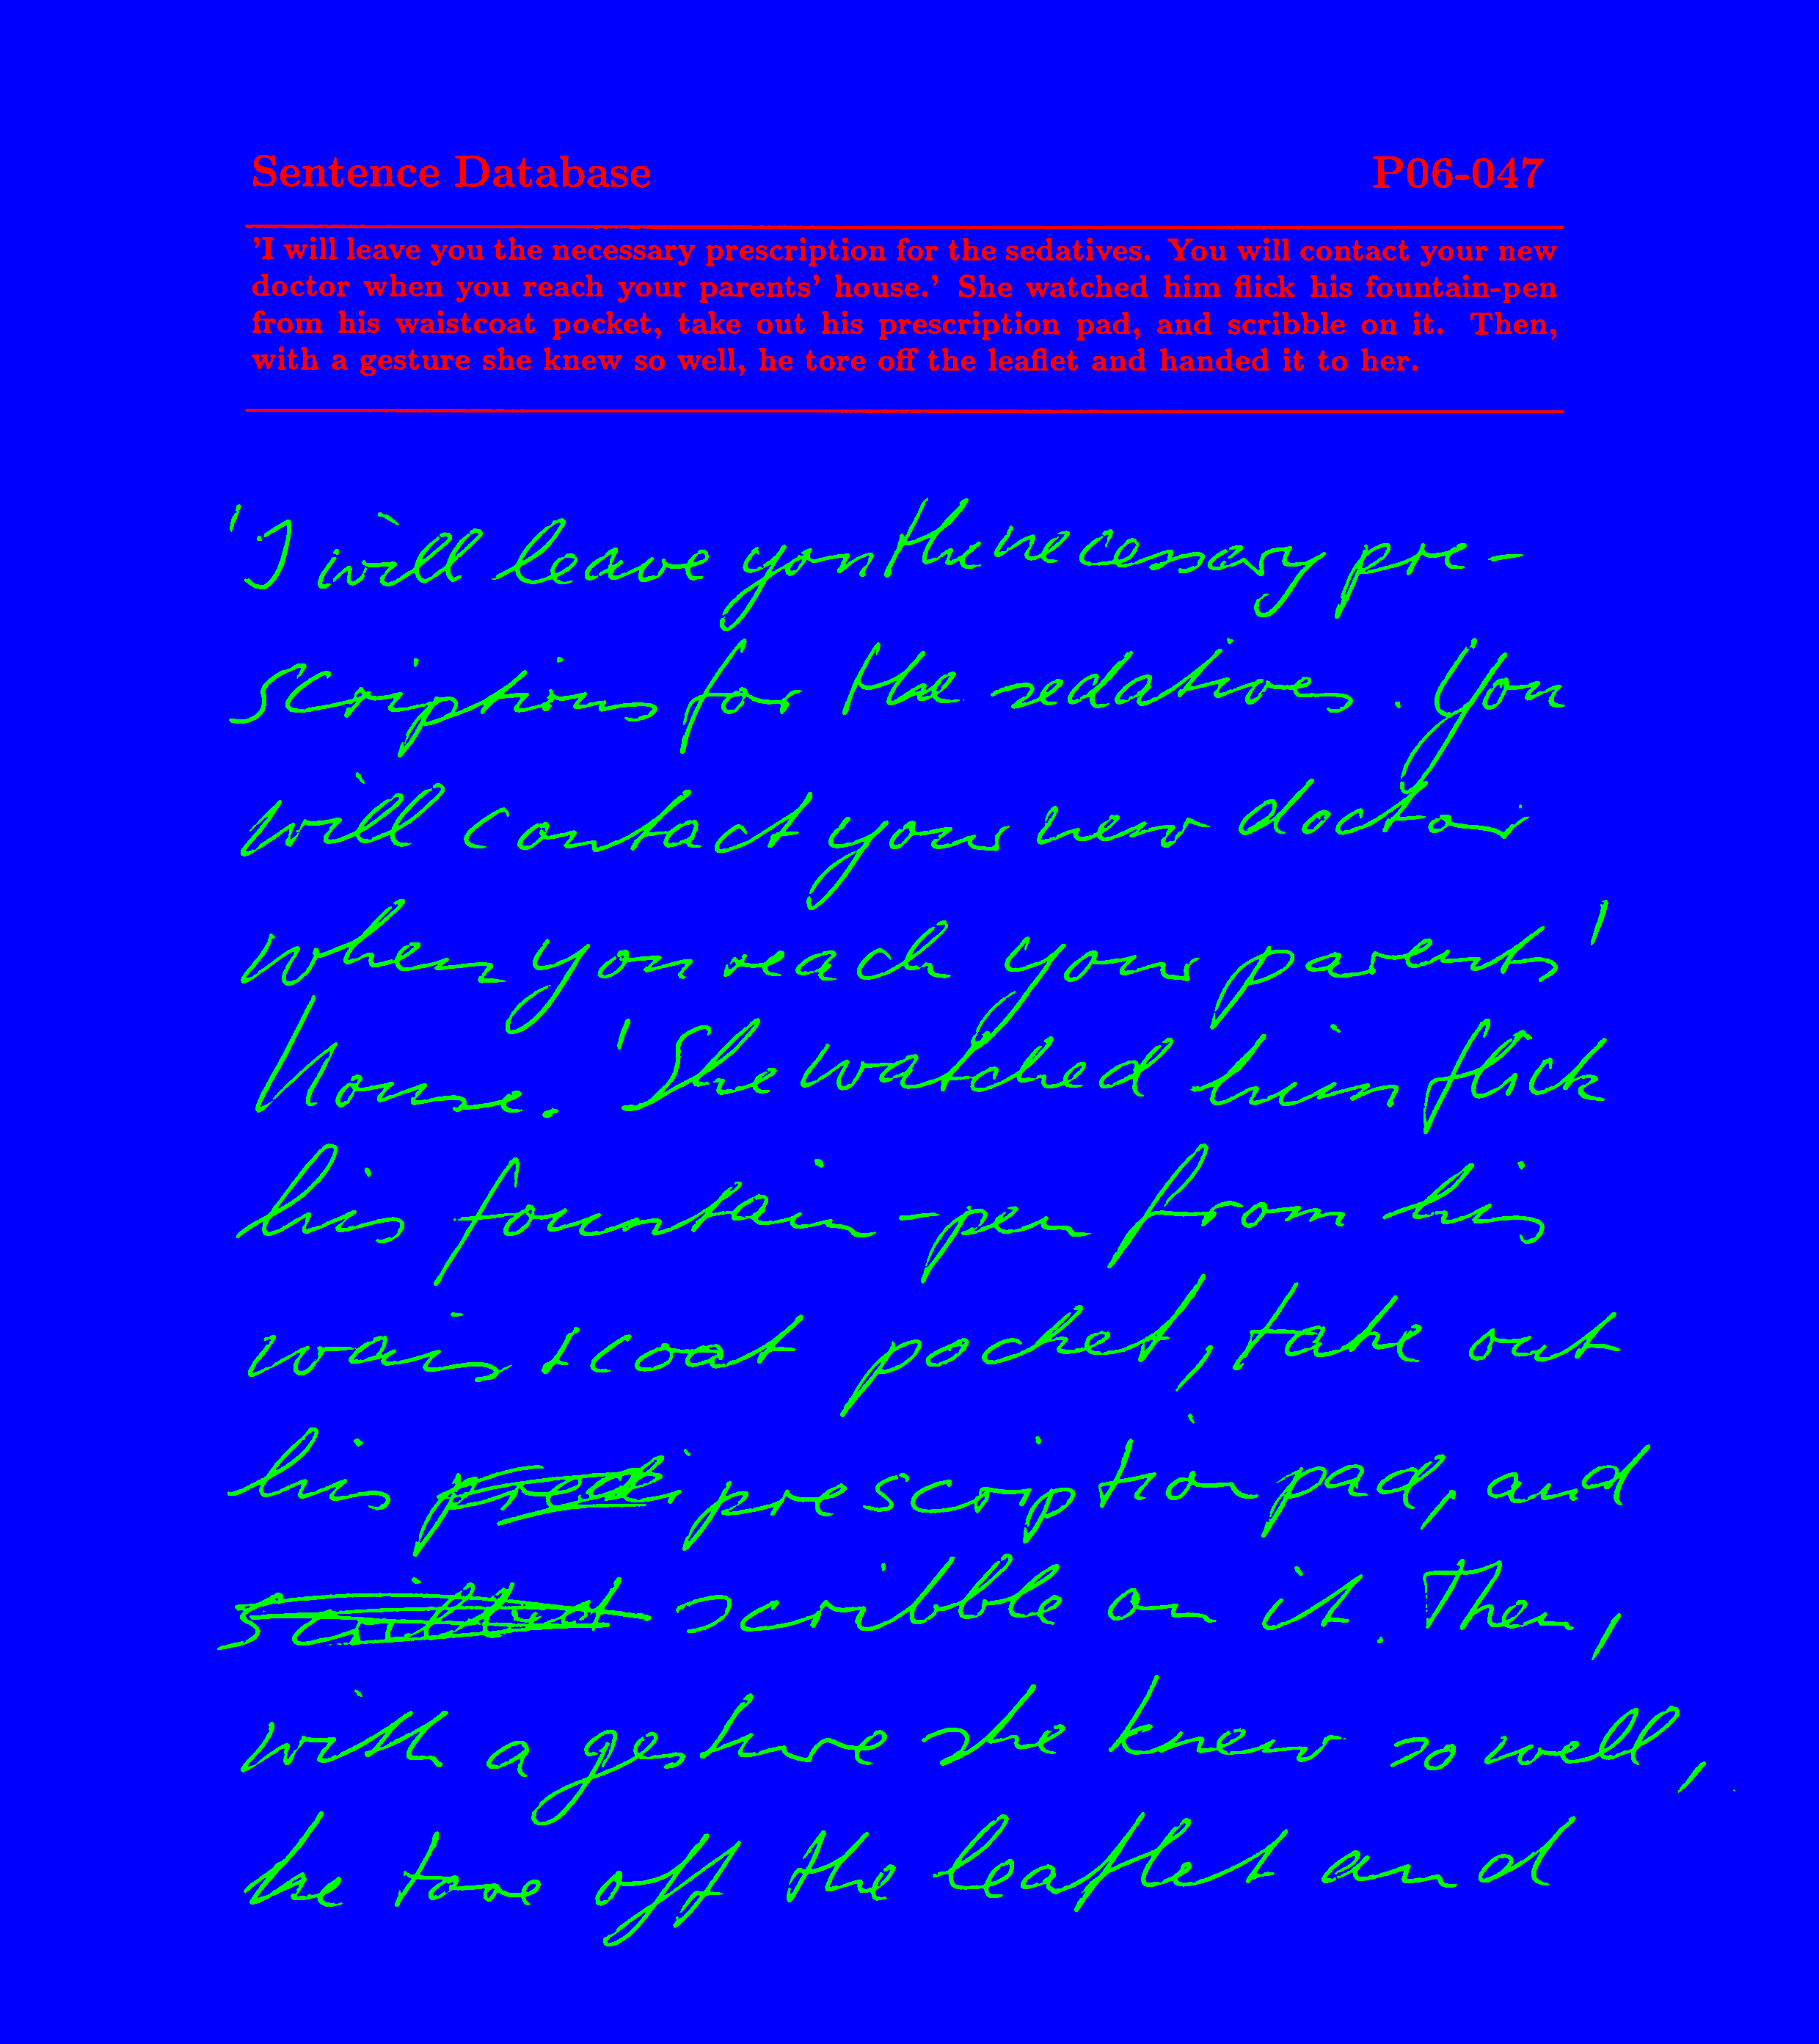 Sentence Database P06-047
'I will leave you the necessary prescription for the sedatives. You will contact your new
doctor when you reach your parents' house.' She watched him flick his fountain-pen
from his waistcoat pocket, take out his prescription pad, and scribble on it. Then,
with a gesture she knew so well, he tore off the leaflet and handed it to her.
'I will leave you the necessary pre-
scriptions for the sedatives. You
will contact your new doctor
when you reach your parents'
house.' She watched him flick
his fountain-pen from his
waistcoat pocket, take out
his prescription pad, and
scribble on it. Then,
with a gesture she knew so well,
he tore off the leaflet and